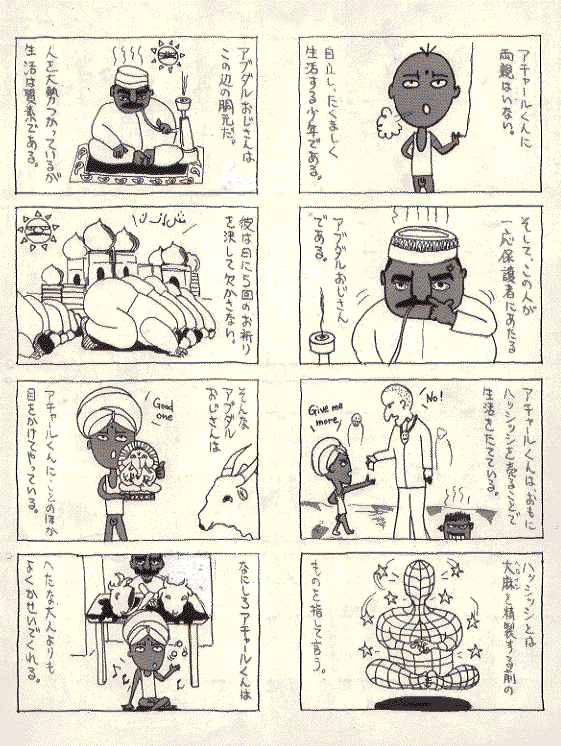 アチャールくんに
両親はいない。
自立し、たくましく
生活する少年である。
そして、この人が
一応保護者にあたる
アブダルおじさん
である。
アチャールくんはおもに
ハッシッシを売ることで
生活をたてている。
No!
Give me
more
ハッシッシとは
大麻を精製する前の
ものを指して言う。
アブダルおじさんは
この辺の胴元だ。
人を大勢つかっているが
生活は質素である。
彼は日に5回のお祈り
を決して欠かさない。
そんな
アブダル
おじさんは
Good
one
アチャールくんに、ことのほか
目をかけてやっている。
なにしろアチャールくんは
へたな大人よりも
よくかせいでくれる。